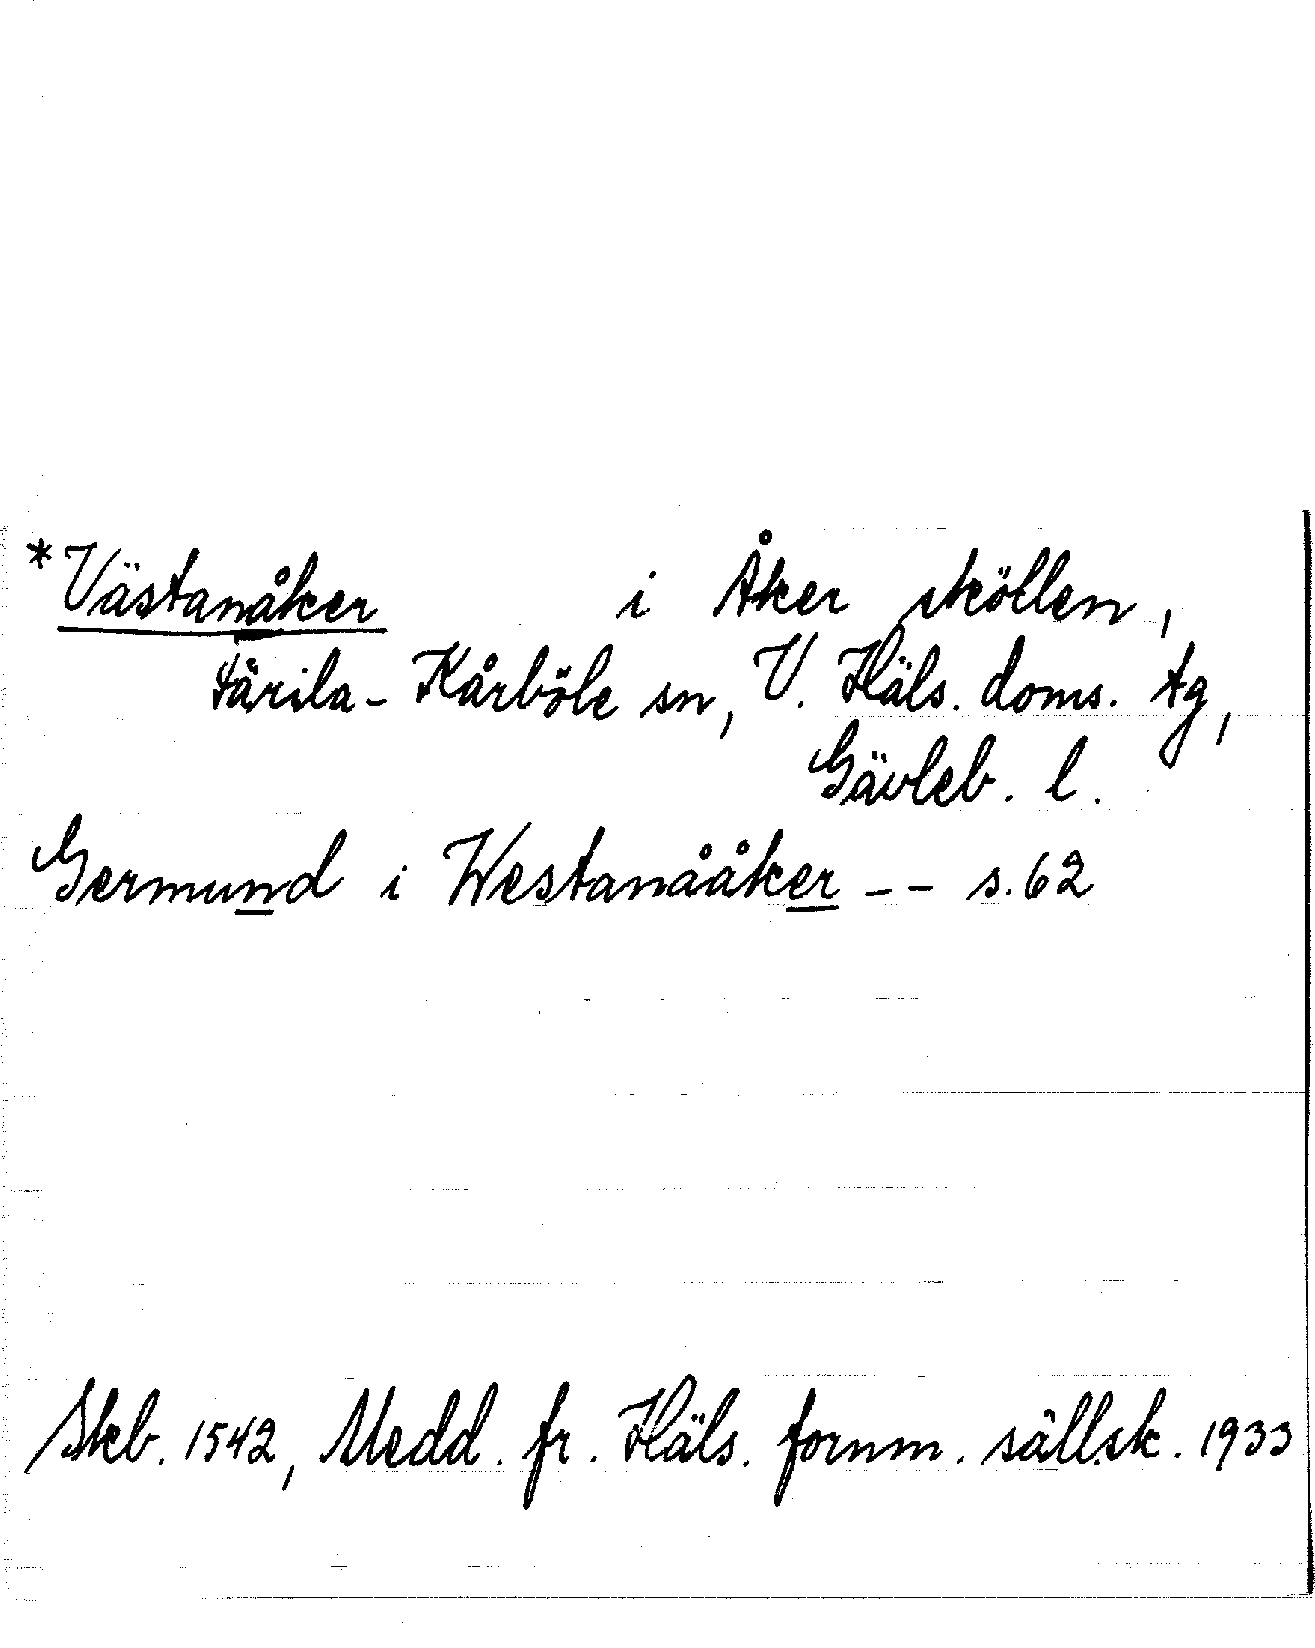 *Västanåker i Åker sköllen,
Färila-Kårböle sn, V. Häls. doms. tg,
Gävleb. l.
Germund i Westanååker -- s. 62
Skb. 1542, Medd. fr. Häls. fornm. sällsk. 1933